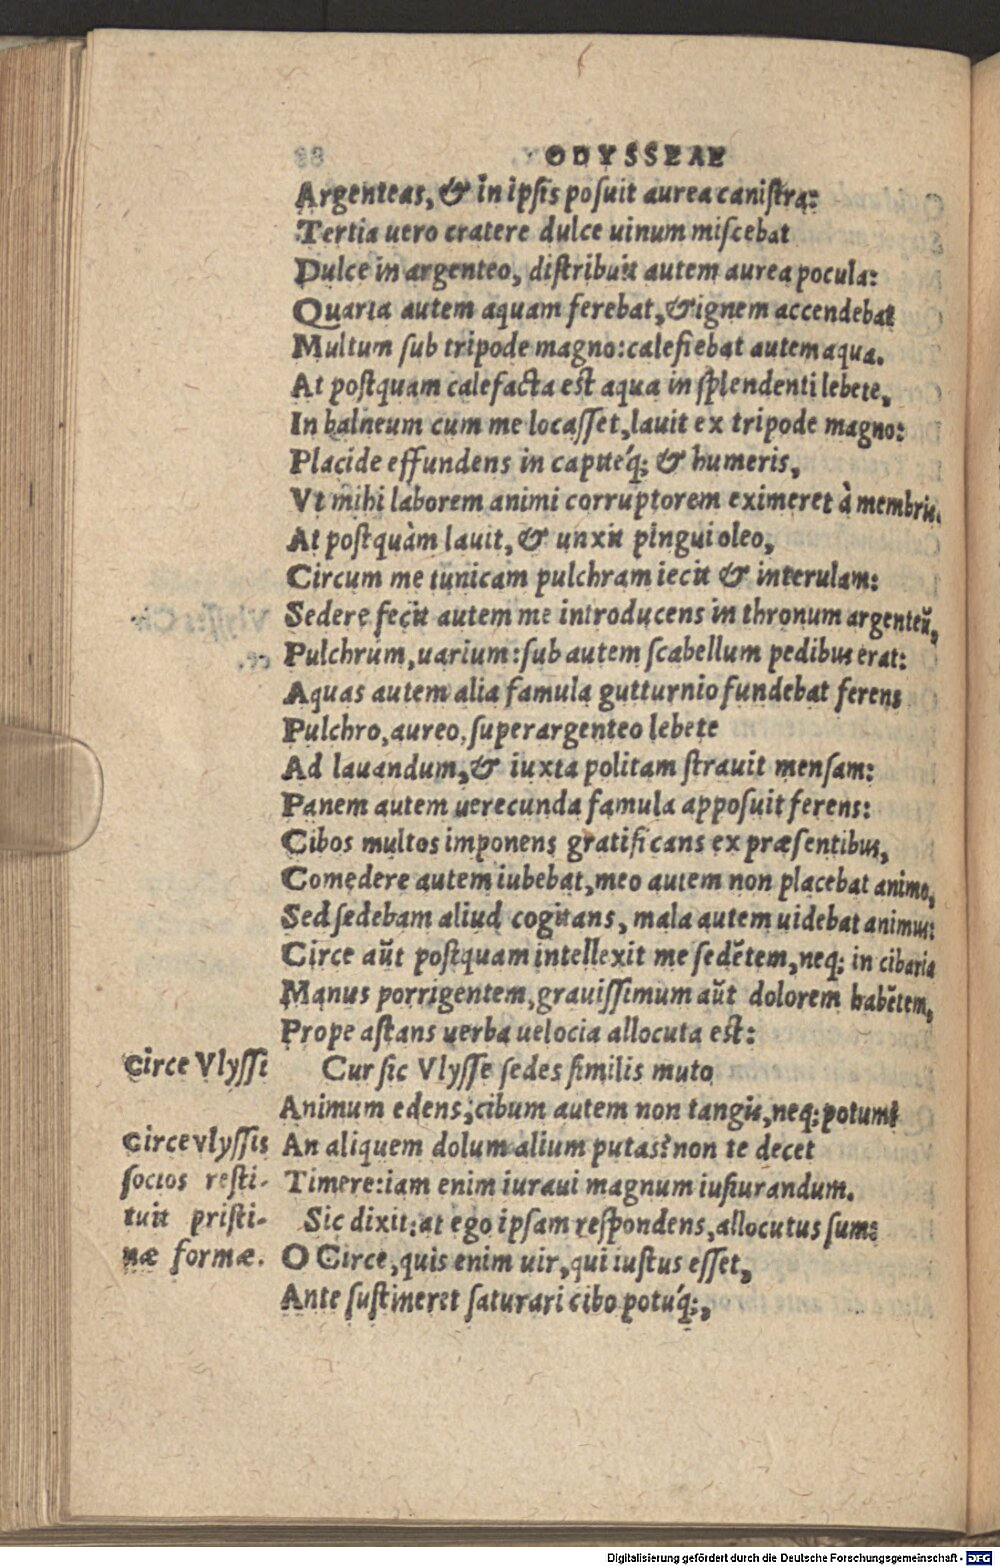 ODYSSEAE
Argenteas, & in ipſis poſuit aurea caniſtra:
Tertia uero cratere dulce uinum miſcebat
Dulce in argenteo, diſtribuit autem aurea pocula:
Quarta autem aquam ferebat, & ignem accendebat
Multum ſub tripode magno: calefiebat autem aqua.
At poſtquam calefacta eſt aqua in ſplendenti lebete,
In balneum cum me locaſſet, lauit ex tripode magno:
Placide effundens in caputéq; & humeris,
Vt mihi laborem animi corruptorem eximeret à membris.
At poſtquàm lauit, & unxit pingui oleo,
Circum me tunicam pulchram iecit & interulam:
Sedere fecit autem me introducens in thronum argenteũ,
Pulchrum, uarium: ſub autem ſcabellum pedibus erat:
Aquas autem alia famula gutturnio fundebat ferens
Pulchro, aureo, ſuper argenteo lebete
Ad lauandum, & iuxta politam ſtrauit menſam:
Panem autem uerecunda famula appoſuit ferens:
Cibos multos imponens gratificans ex præſentibus,
Comedere autem iubebat, meo autem non placebat animo,
Sed ſedebam aliud cogitans, mala autem uidebat animus:
Circe aũt poſtquam intellexit me ſedẽtem, neq; in cibaria
Manus porrigentem, grauiſſimum aũt dolorem habẽtem,
Prope aſtans uerba uelocia allocuta eſt:
Circe Vlyſſi
Cur ſic Vlyſſe ſedes ſimilis muto
Animum edens; cibum autem non tangis, neq; potum?
Circe vlyſſis
ſocios reſti-
tuit priſti-
næ formæ.
An aliquem dolum alium putas? non te decet
Timere: iam enim iuraui magnum iuſiurandum.
Sic dixit: at ego ipſam reſpondens, allocutus ſum:
O Circe, quis enim uir, qui iuſtus eſſet,
Ante ſuſtineret ſaturari cibo potúq;,
Digitalisierung gefördert durch die Deutsche Forschungsgemeinschaft - DFG